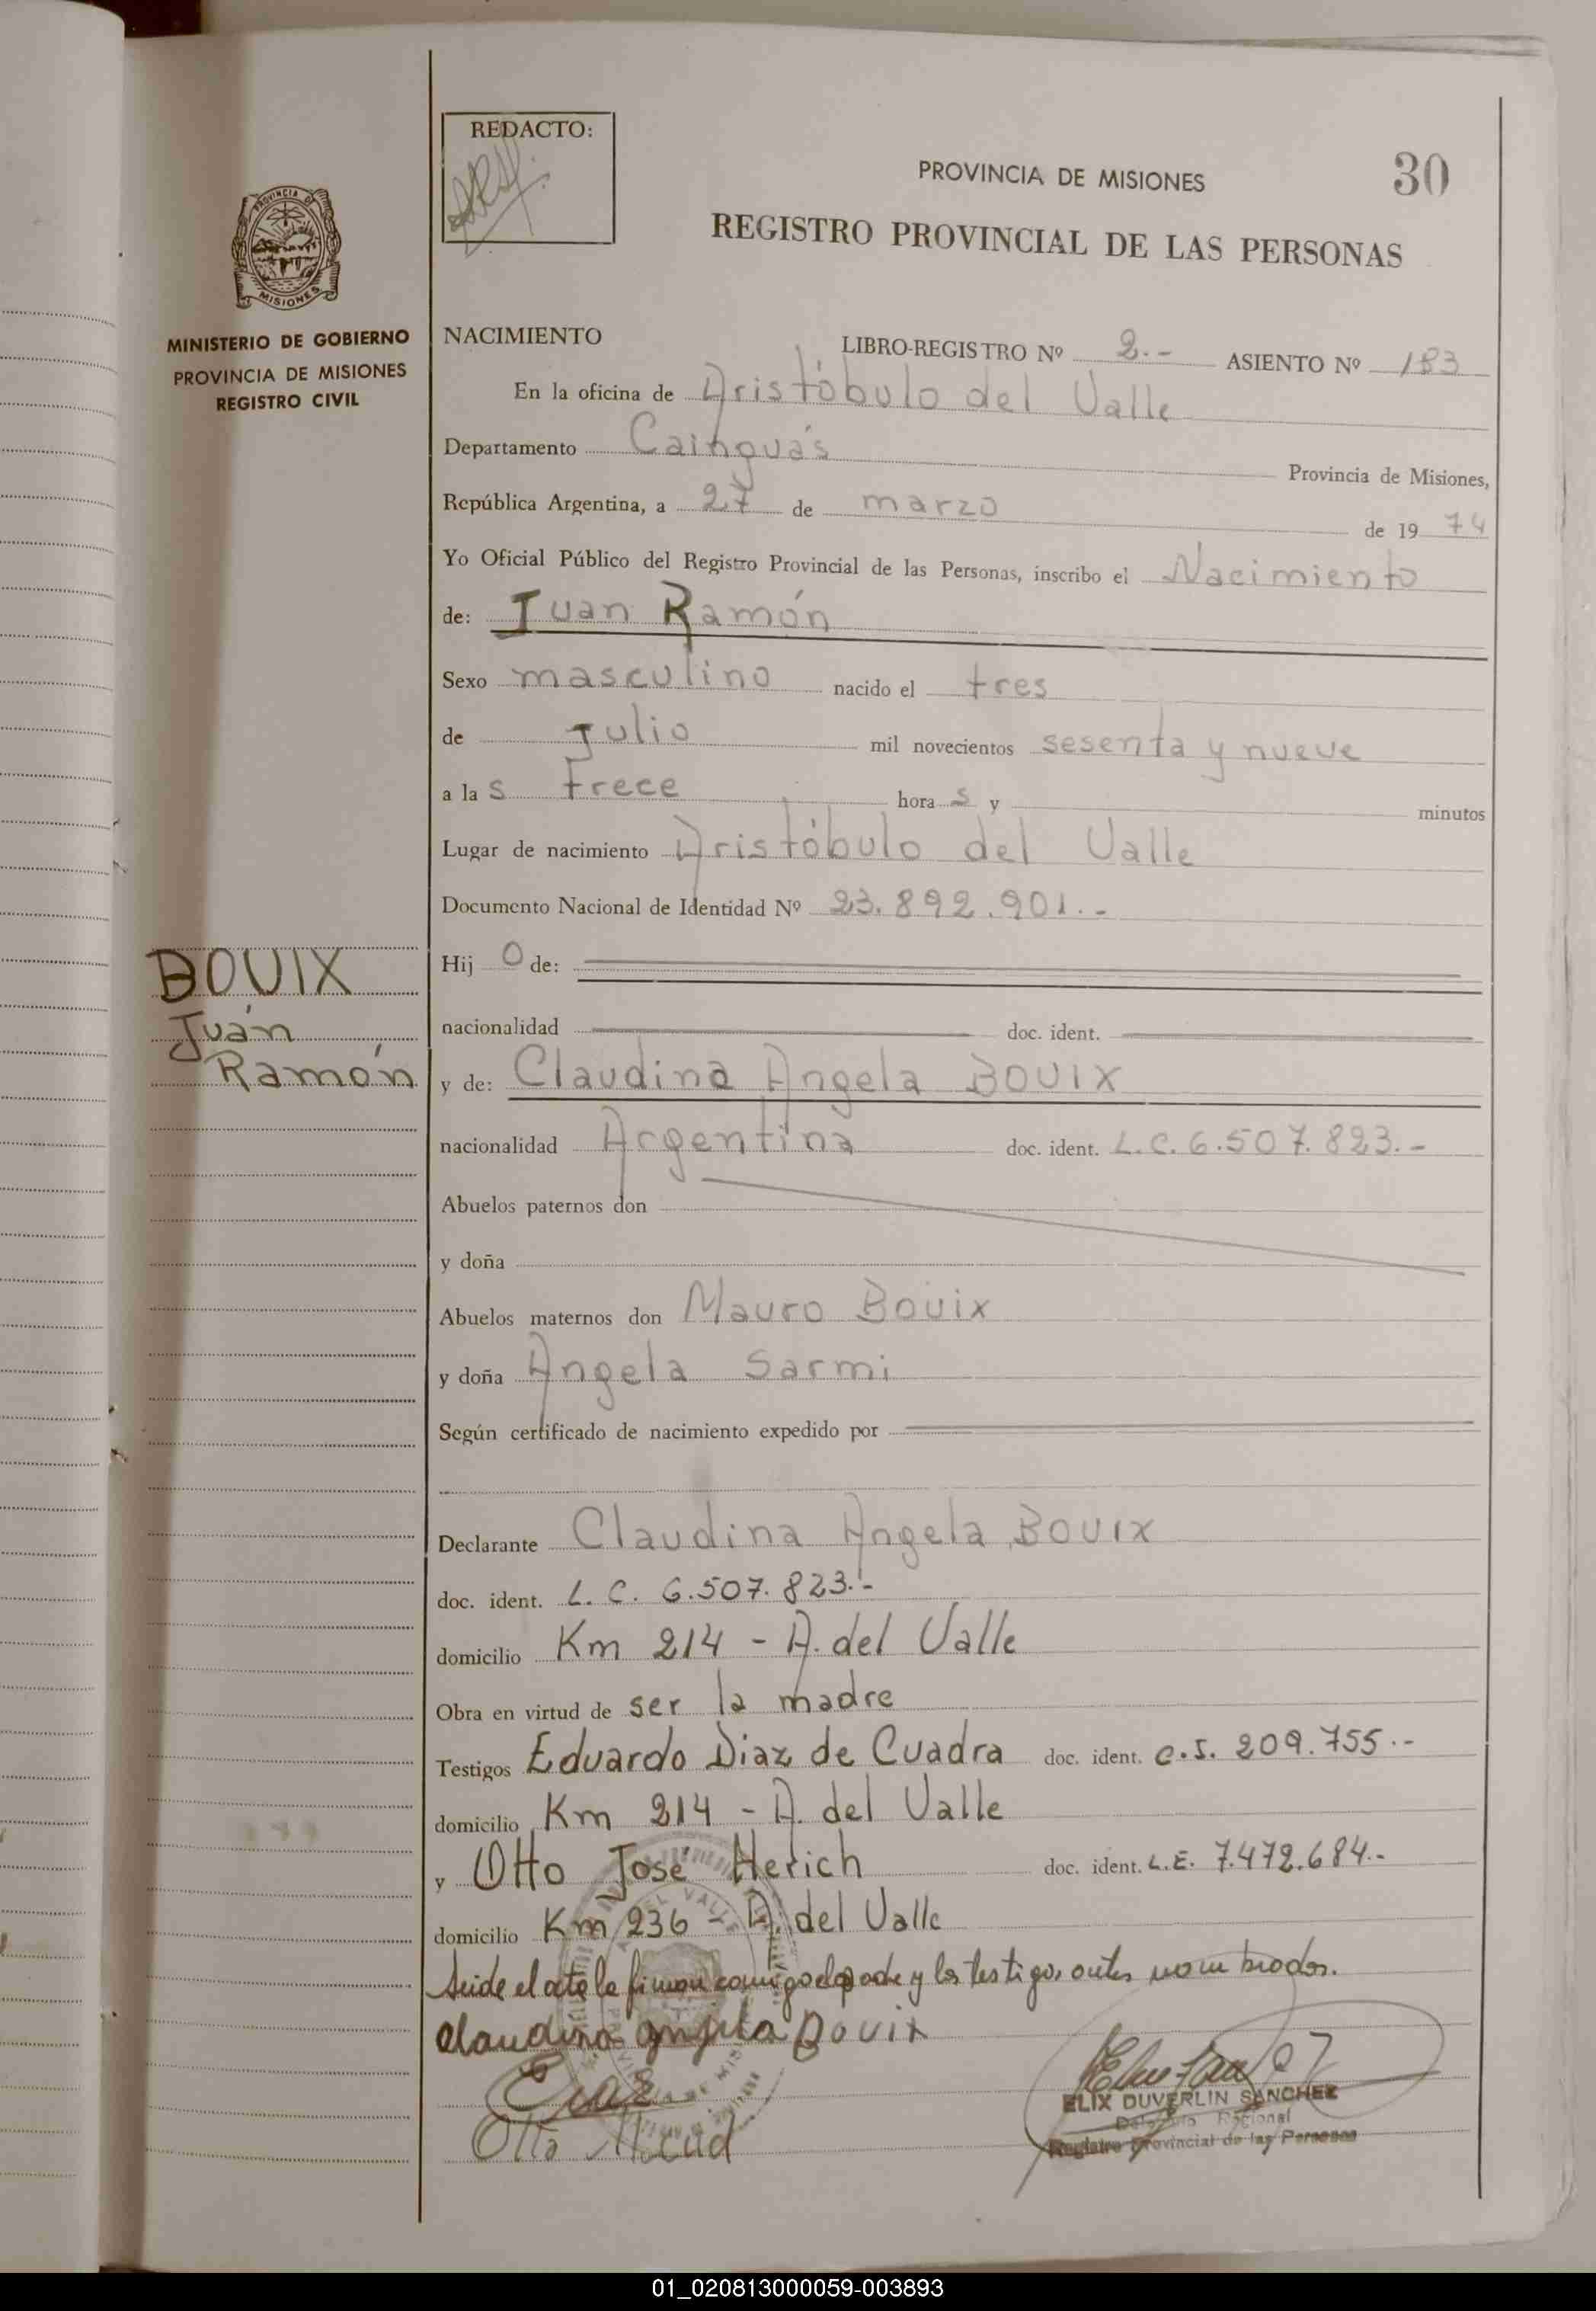 REDACTO:
PROVINCIA DE MISIONES
30
REGISTRO PROVINCIAL DE LAS PERSONAS
PROVINCIA DE
MISIONES
MINISTERIO DE GOBIERNO
PROVINCIA DE MISIONES
REGISTRO CIVIL
NACIMIENTO LIBRO-REGISTRO Nº 2.- ASIENTO Nº 183
En la oficina de Aristóbulo del Valle
Departamento Cainguás Provincia de Misiones,
República Argentina, a 27 de marzo de 19 74
Yo Oficial Público del Registro Provincial de las Personas, inscribo el Nacimiento
de: Juan Ramón
Sexo masculino nacido el tres
de Julio mil novecientos sesenta y nueve
a la s trece hora s y minutos
Lugar de nacimiento Aristóbulo del Valle
Documento Nacional de Identidad Nº 23.892.901.-
Hij o de:
nacionalidad doc. ident.
BOUIX
Juan
Ramón
y de: Claudina Angela BOUIX
nacionalidad Argentina doc. ident. L.C. 6.507.823.-
Abuelos paternos don
y doña
Abuelos maternos don Mauro Bouix
y doña Angela Sarmi
Según certificado de nacimiento expedido por
Declarante Claudina Angela BOUIX
doc. ident. L. C. 6.507.823.-
domicilio Km 214 - A. del Valle
Obra en virtud de ser la madre
Testigos Eduardo Diaz de Cuadra doc. ident. C.I. 209.755.-
domicilio Km 214 - A. del Valle
y Otto José Herich doc. ident. L.E. 7.472.684.-
domicilio Km 236 - A. del Valle
el acta la firman conmigo y los testigos antes nombrados.
Claudina Angela Bouix
Otto
ELIX DUVERLIN SANCHEZ
Delegado Regional
Registro Provincial de las Personas
01_020813000059-003893